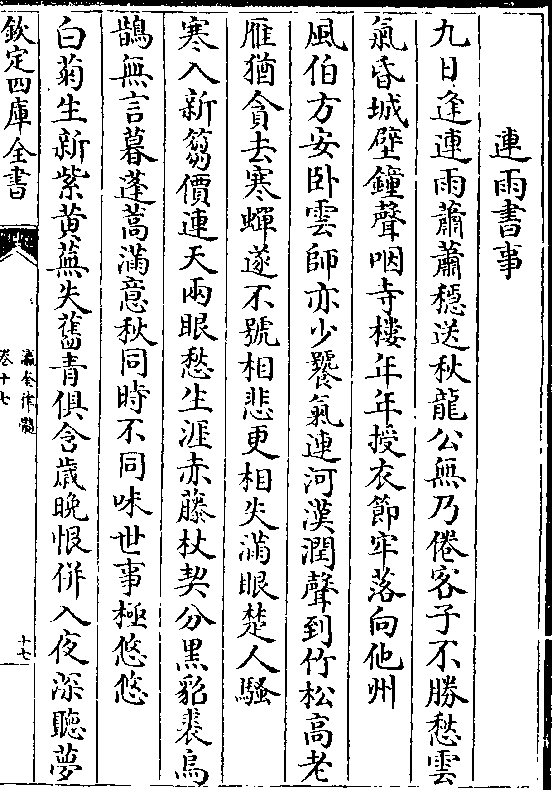 連雨書事
九日逢連雨蕭蕭穏送秋龍公無乃倦客子不勝愁雲
氣昏城壁鐘聲咽寺樓年年授衣節牢落向他州
風伯方安卧雲師亦少饕氣連河漢潤聲到竹松高老
雁猶貪去寒蟬遂不號相悲更相失滿眼楚人騷
寒入新蒭價連天兩眼愁生涯赤藤杖契分黑貂裘烏
鵲無言暮蓬蒿滿意秋同時不同味世事極悠悠
白菊生新紫黄蕪失舊青俱含歲晚恨併入夜深聽夢
欽定四庫全書
瀛奎律髓
卷十七
十七